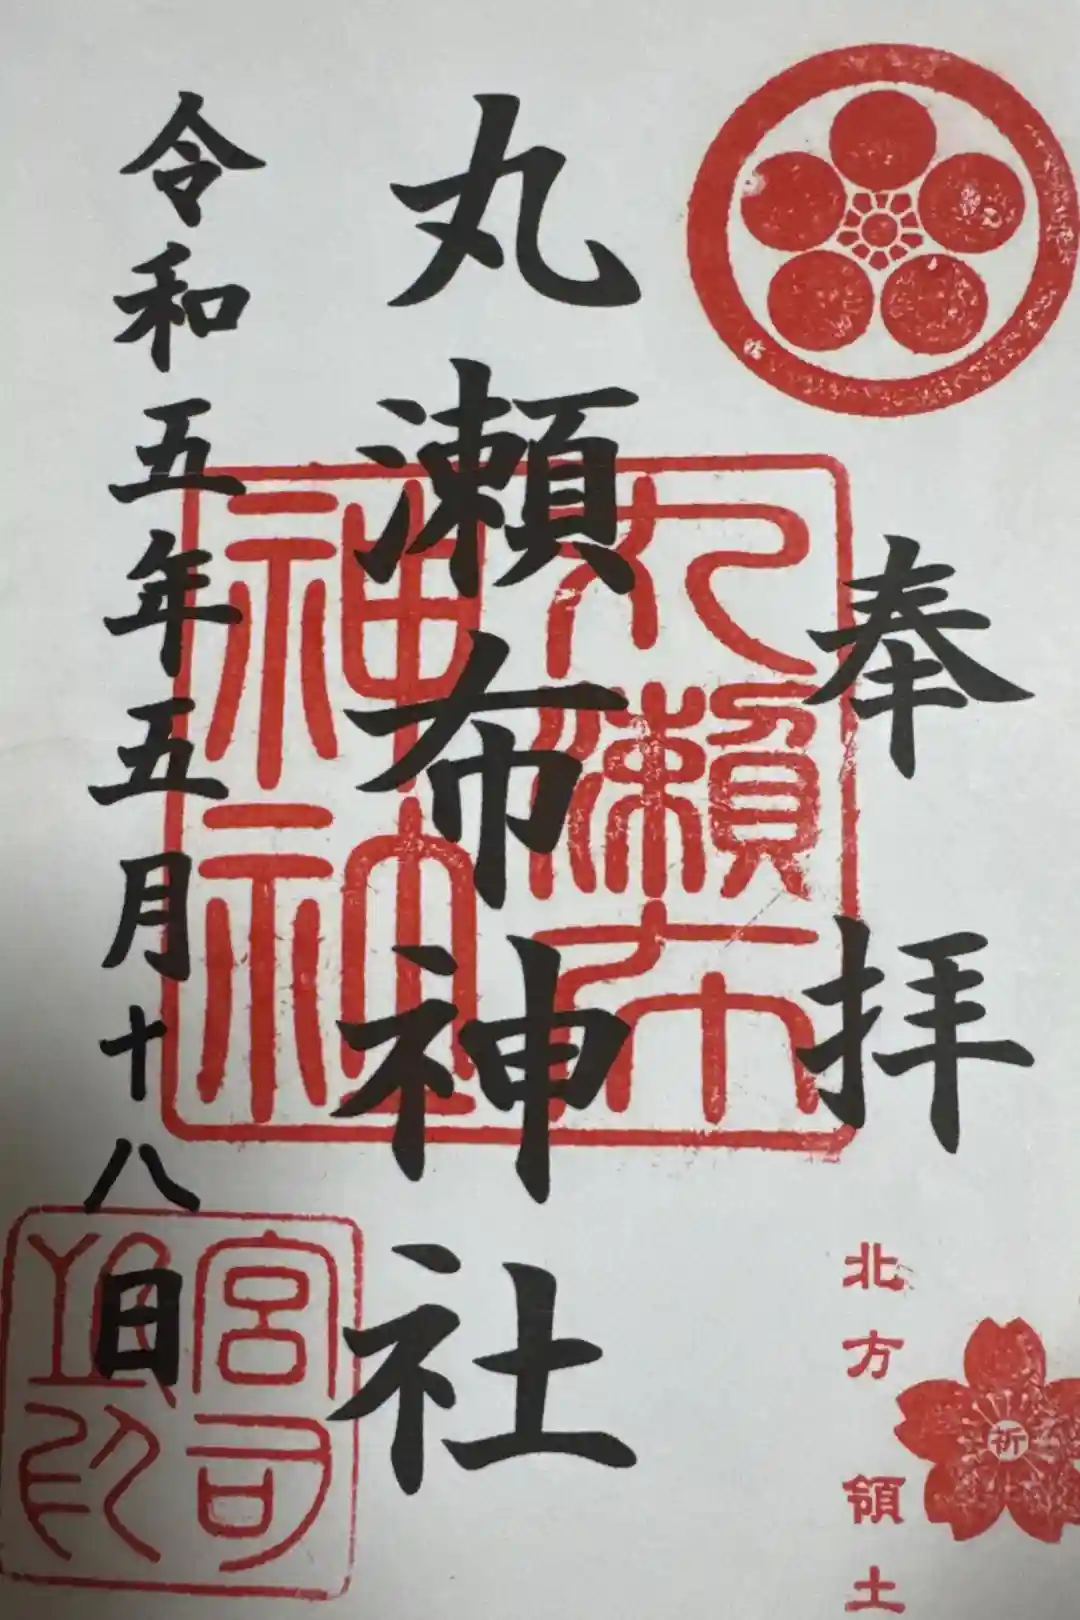 奉拝
北方領土
祈
丸瀬布神社
丸瀬布
神社
令和五年五月十八日
宮司
之印